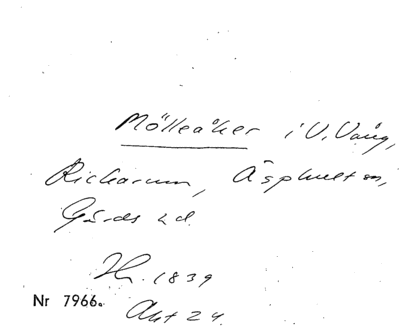 Mölleåker i V. Vång,
Rickarum, Äsphult sn,
Gärds hd.
Hr. 1839
Nr 7966. Akt 24